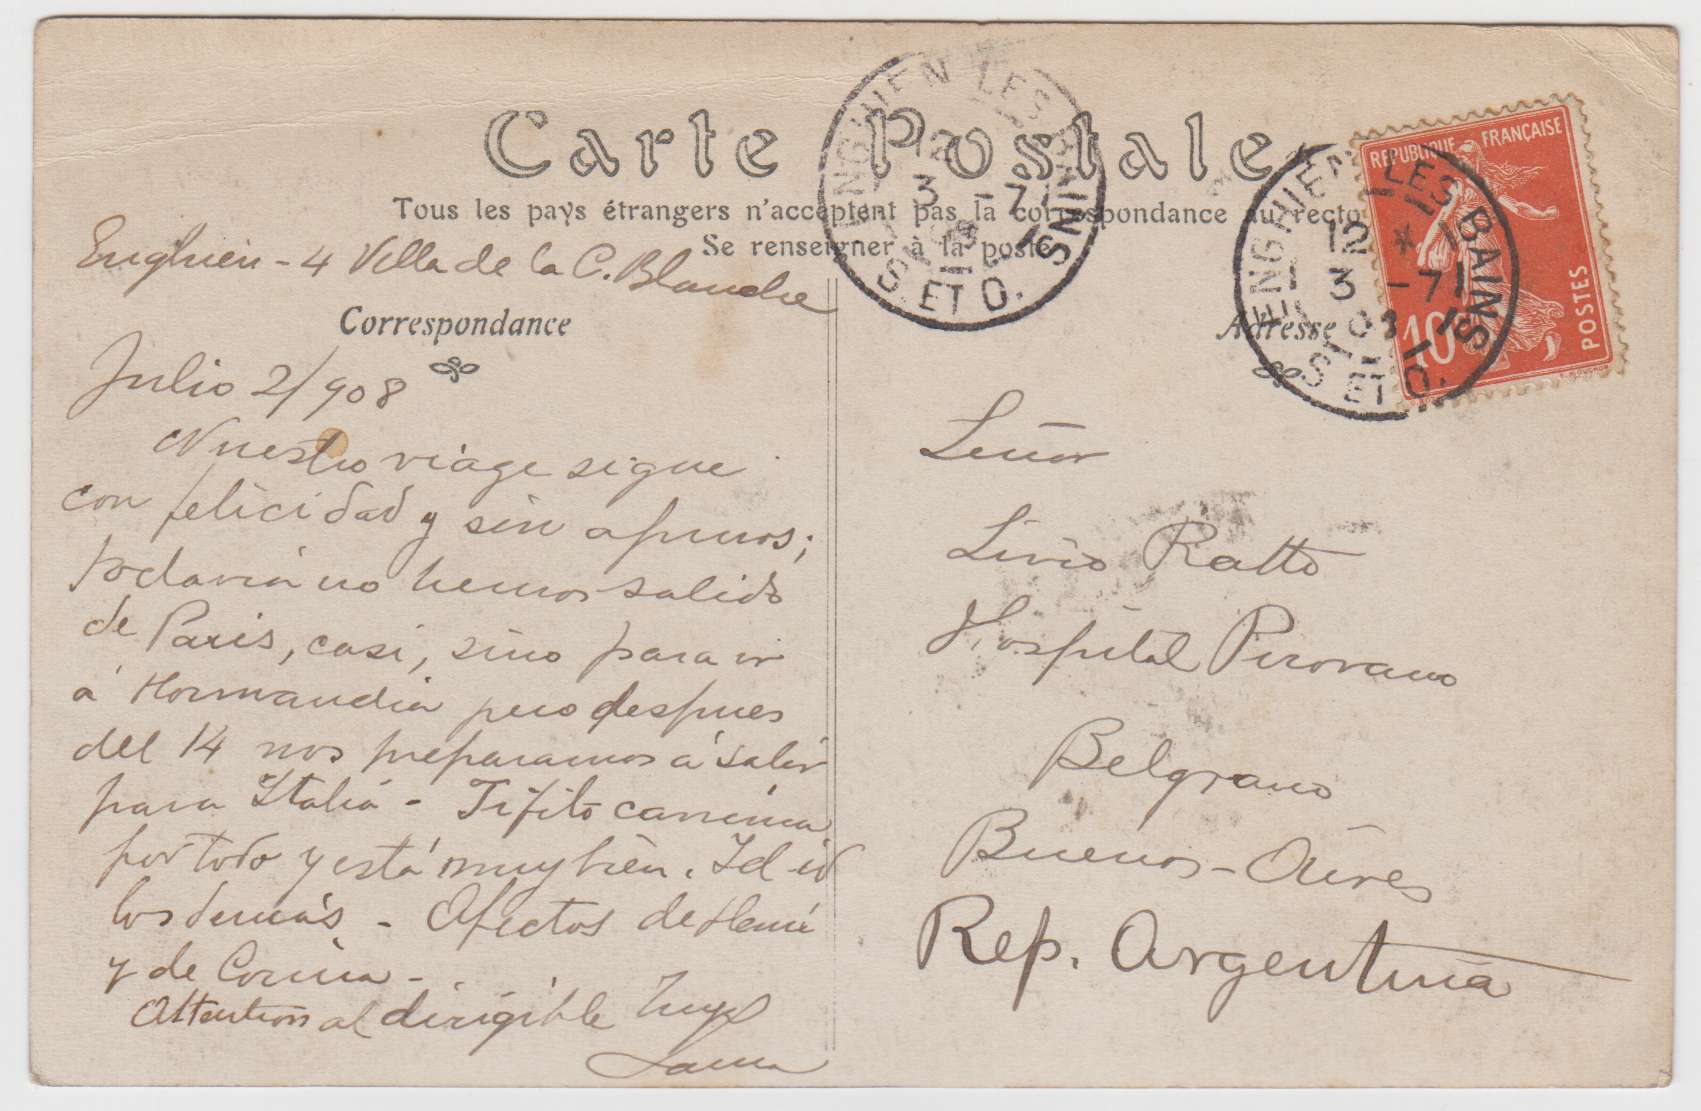 Carte Postale
Tous les pays étrangers n'acceptent pas la correspondance au recto
Se renseigner à la poste
Enghien - 4 Villa de la C. Blanche
Correspondance
Julio 2/908
Nuestro viage sigue
con felicidad y sin apuros;
todavia no hemos salido
de Paris, casi, sino para ir
á Normandia pero despues
del 14 nos preparamos á salir
para Italia - Tifito camina
por todo y está muy bien. Id id
los demás - Afectos de
y de Corina -
Attention al dirigible
Laura
ENGHIEN LES BAINS
3 -7
S. ET O.
REPUBLIQUE FRANÇAISE
POSTES
10
ENGHIEN LES BAINS
12 *
3 -7
08
S. ET O.
Adresse
Señor
Livio Ratto
Hospital Pirovano
Belgrano
Buenos-Aires
Rep. Argentina